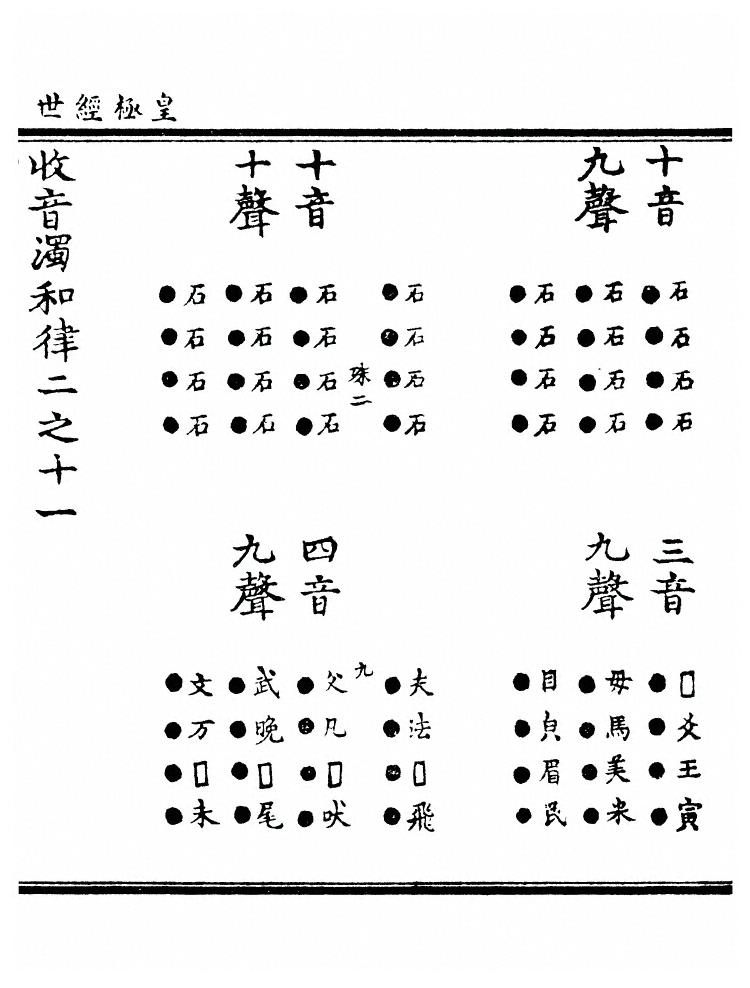 皇極經世
十音
九聲
石石石石
●●●●
石石石石
●●●●
石石石石
●●●●
石石石石
●●●●
珠二
三音
九聲
□爻王寅
●●●●
母馬美米
●●●●
目皃眉民
●●●●
夫法□飛
●●●●
九
十音
十聲
石石石石
●●●●
石石石石
●●●●
石石石石
●●●●
四音
九聲
父凡□吠
●●●●
武晚□尾
●●●●
文万□未
●●●●
收音濁和律二之十一